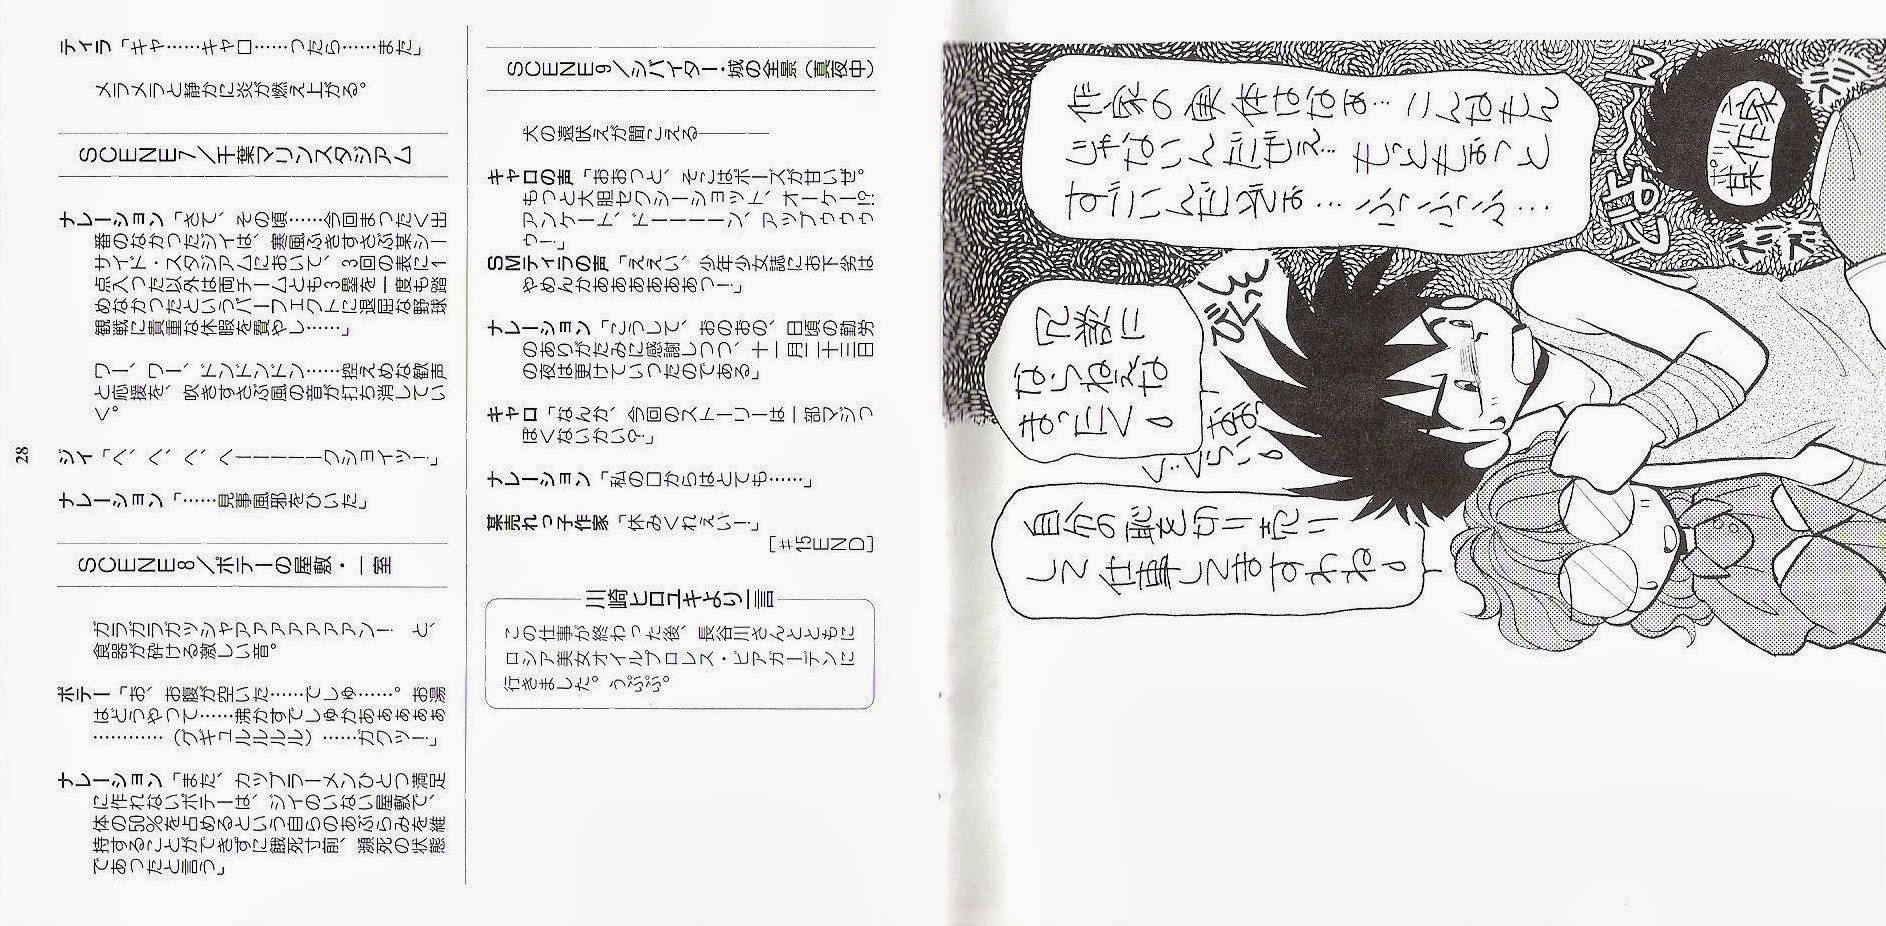 ティラ「キャ……キャロ……ったら……まだ」
メラメラと静かに炎が燃え上がる。
SCENE7／千葉マリンスタジアム
ナレーション「さて、その頃……今回まったく出
番のなかったジイは、寒風ふきすさぶ某シー
サイド・スタジアムにおいて、3回の表に1
点入った以外は両チームとも3塁を一度も踏
めなかったというパーフェクトに退屈な野球
観戦に貴重な休暇を費やし……」
ワー、ワー、ドンドンドン……控えめな歓声
と応援を、吹きすさぶ風の音が打ち消してい
く。
ジイ「へ、へ、へ、へーーーーークショイッ！」
ナレーション「……見事風邪をひいた」
SCENE8／ボテーの屋敷・一室
ガラガラガッシャアアアアアアン！　と、
食器が砕ける激しい音。
ボテー「お、お腹が空いた……でしゅ……。お湯
はどうやって……沸かすでしゅかあぁぁぁぁ
…………（グギュルルルル）……ガクッ！」
ナレーション「まだ、カップラーメンひとつ満足
に作れないボテーは、ジイのいない屋敷で、
体の50％を占めるという自らのあぶらみを維
持することができずに餓死寸前、瀕死の状態
であったと言う」
28
SCENE9／ジバイター・城の全景（真夜中）
犬の遠吠えが聞こえる————
キャロの声「おおっと、そこはポーズが甘いぜ。
もっと大胆セクシーショット、オーケー!?
アンケート、ドーーーーン、アップゥゥゥ
ゥ！」
SMティラの声「ええい、少年少女誌にお下劣は
やめんかあああああぁっ！」
ナレーション「こうして、おのおの、日頃の勤労
のありがたみに感謝しつつ、十一月二十三日
の夜は更けていったのである」
キャロ「なんか、今回のストーリーは一部マジっ
ぽくないかい？」
ナレーション「私の口からはとても……」
某売れっ子作家「休みくれえい！」
［＃15END］
川崎ヒロユキより一言
この仕事が終わった後、長谷川さんとともに
ロシア美女オイルプロレス・ビアガーデンに
行きました。うぷぷ。
作家の実体はなぁ…こんなもん
じゃないんだぜぇ…もっともぉっと
すごいんだぞぉ…ふっふっふ…
某作家
ズズ
びくっ
冗談に
ならねえな
まったく
自分の恥を切り売り
して仕事してますわね